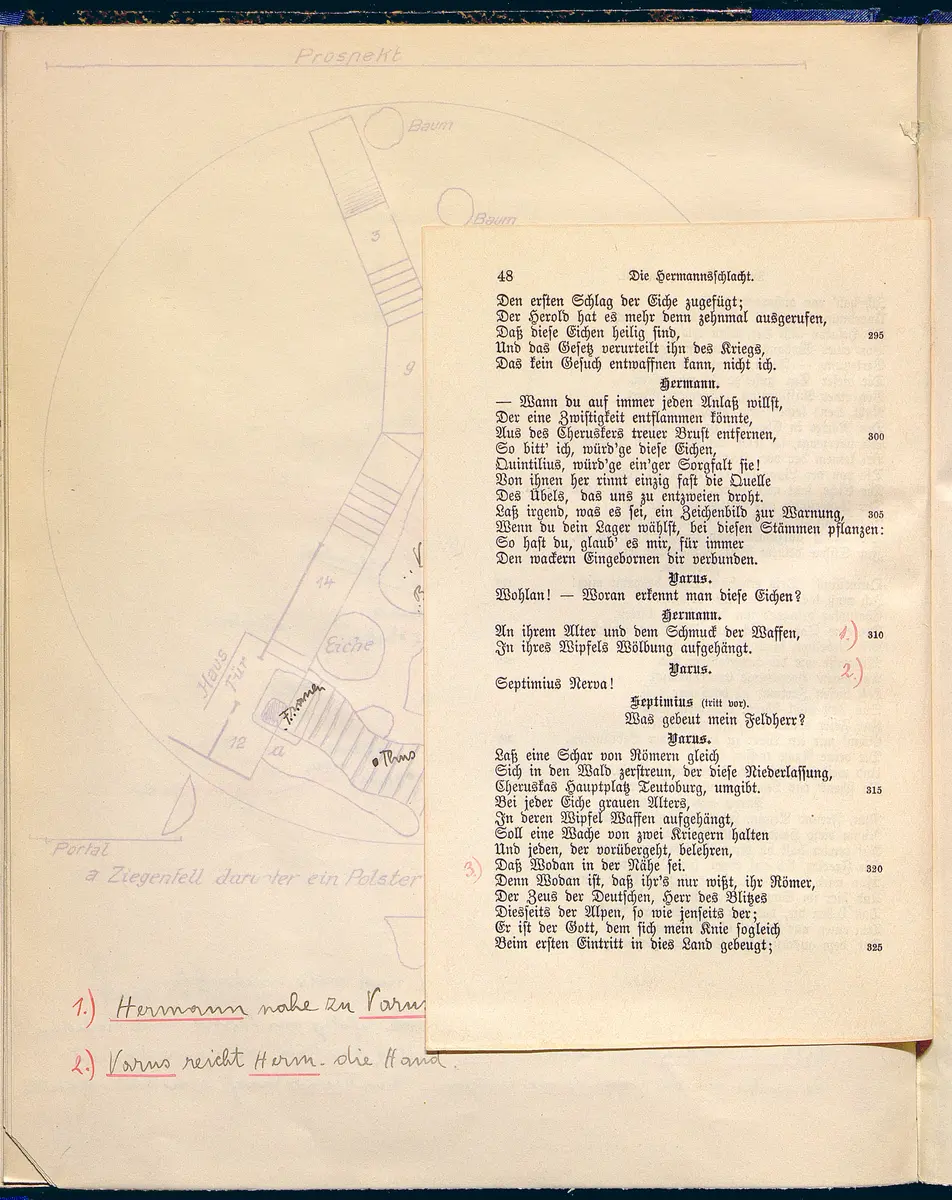 Prospekt
Baum
Baum
3
9
14
Eiche
Haus
Tür
Frauen
12
a
Thus
Portal
a Ziegenfell darunter ein Polster
1.) Hermann nahe zu Varus
2.) Varus reicht Herm. die Hand.
48 Die Hermannsſchlacht.
Den erſten Schlag der Eiche zugefügt;
Der Herold hat es mehr denn zehnmal ausgerufen,
Daß dieſe Eichen heilig ſind, 295
Und das Geſetz verurteilt ihn des Kriegs,
Das kein Geſuch entwaffnen kann, nicht ich.
Hermann.
— Wann du auf immer jeden Anlaß willſt,
Der eine Zwiſtigkeit entflammen könnte,
Aus des Cheruskers treuer Bruſt entfernen, 300
So bitt' ich, würd'ge dieſe Eichen,
Quintilius, würd'ge ein'ger Sorgfalt ſie!
Von ihnen her rinnt einzig faſt die Quelle
Des Übels, das uns zu entzweien droht.
Laß irgend, was es ſei, ein Zeichenbild zur Warnung, 305
Wenn du dein Lager wählſt, bei dieſen Stämmen pflanzen:
So haſt du, glaub' es mir, für immer
Den wackern Eingebornen dir verbunden.
Varus.
Wohlan! — Woran erkennt man dieſe Eichen?
Hermann.
An ihrem Alter und dem Schmuck der Waffen, 1.) 310
In ihres Wipfels Wölbung aufgehängt.
Varus. 2.)
Septimius Nerva!
Septimius (tritt vor).
Was gebeut mein Feldherr?
Varus.
Laß eine Schar von Römern gleich
Sich in den Wald zerſtreun, der dieſe Niederlaſſung,
Cheruskas Hauptplatz Teutoburg, umgibt. 315
Bei jeder Eiche grauen Alters,
In deren Wipfel Waffen aufgehängt,
Soll eine Wache von zwei Kriegern halten
Und jeden, der vorübergeht, belehren,
3.) Daß Wodan in der Nähe ſei. 320
Denn Wodan iſt, daß ihr's nur wißt, ihr Römer,
Der Zeus der Deutſchen, Herr des Blitzes
Diesſeits der Alpen, ſo wie jenſeits der;
Er iſt der Gott, dem ſich mein Knie ſogleich
Beim erſten Eintritt in dies Land gebeugt; 325